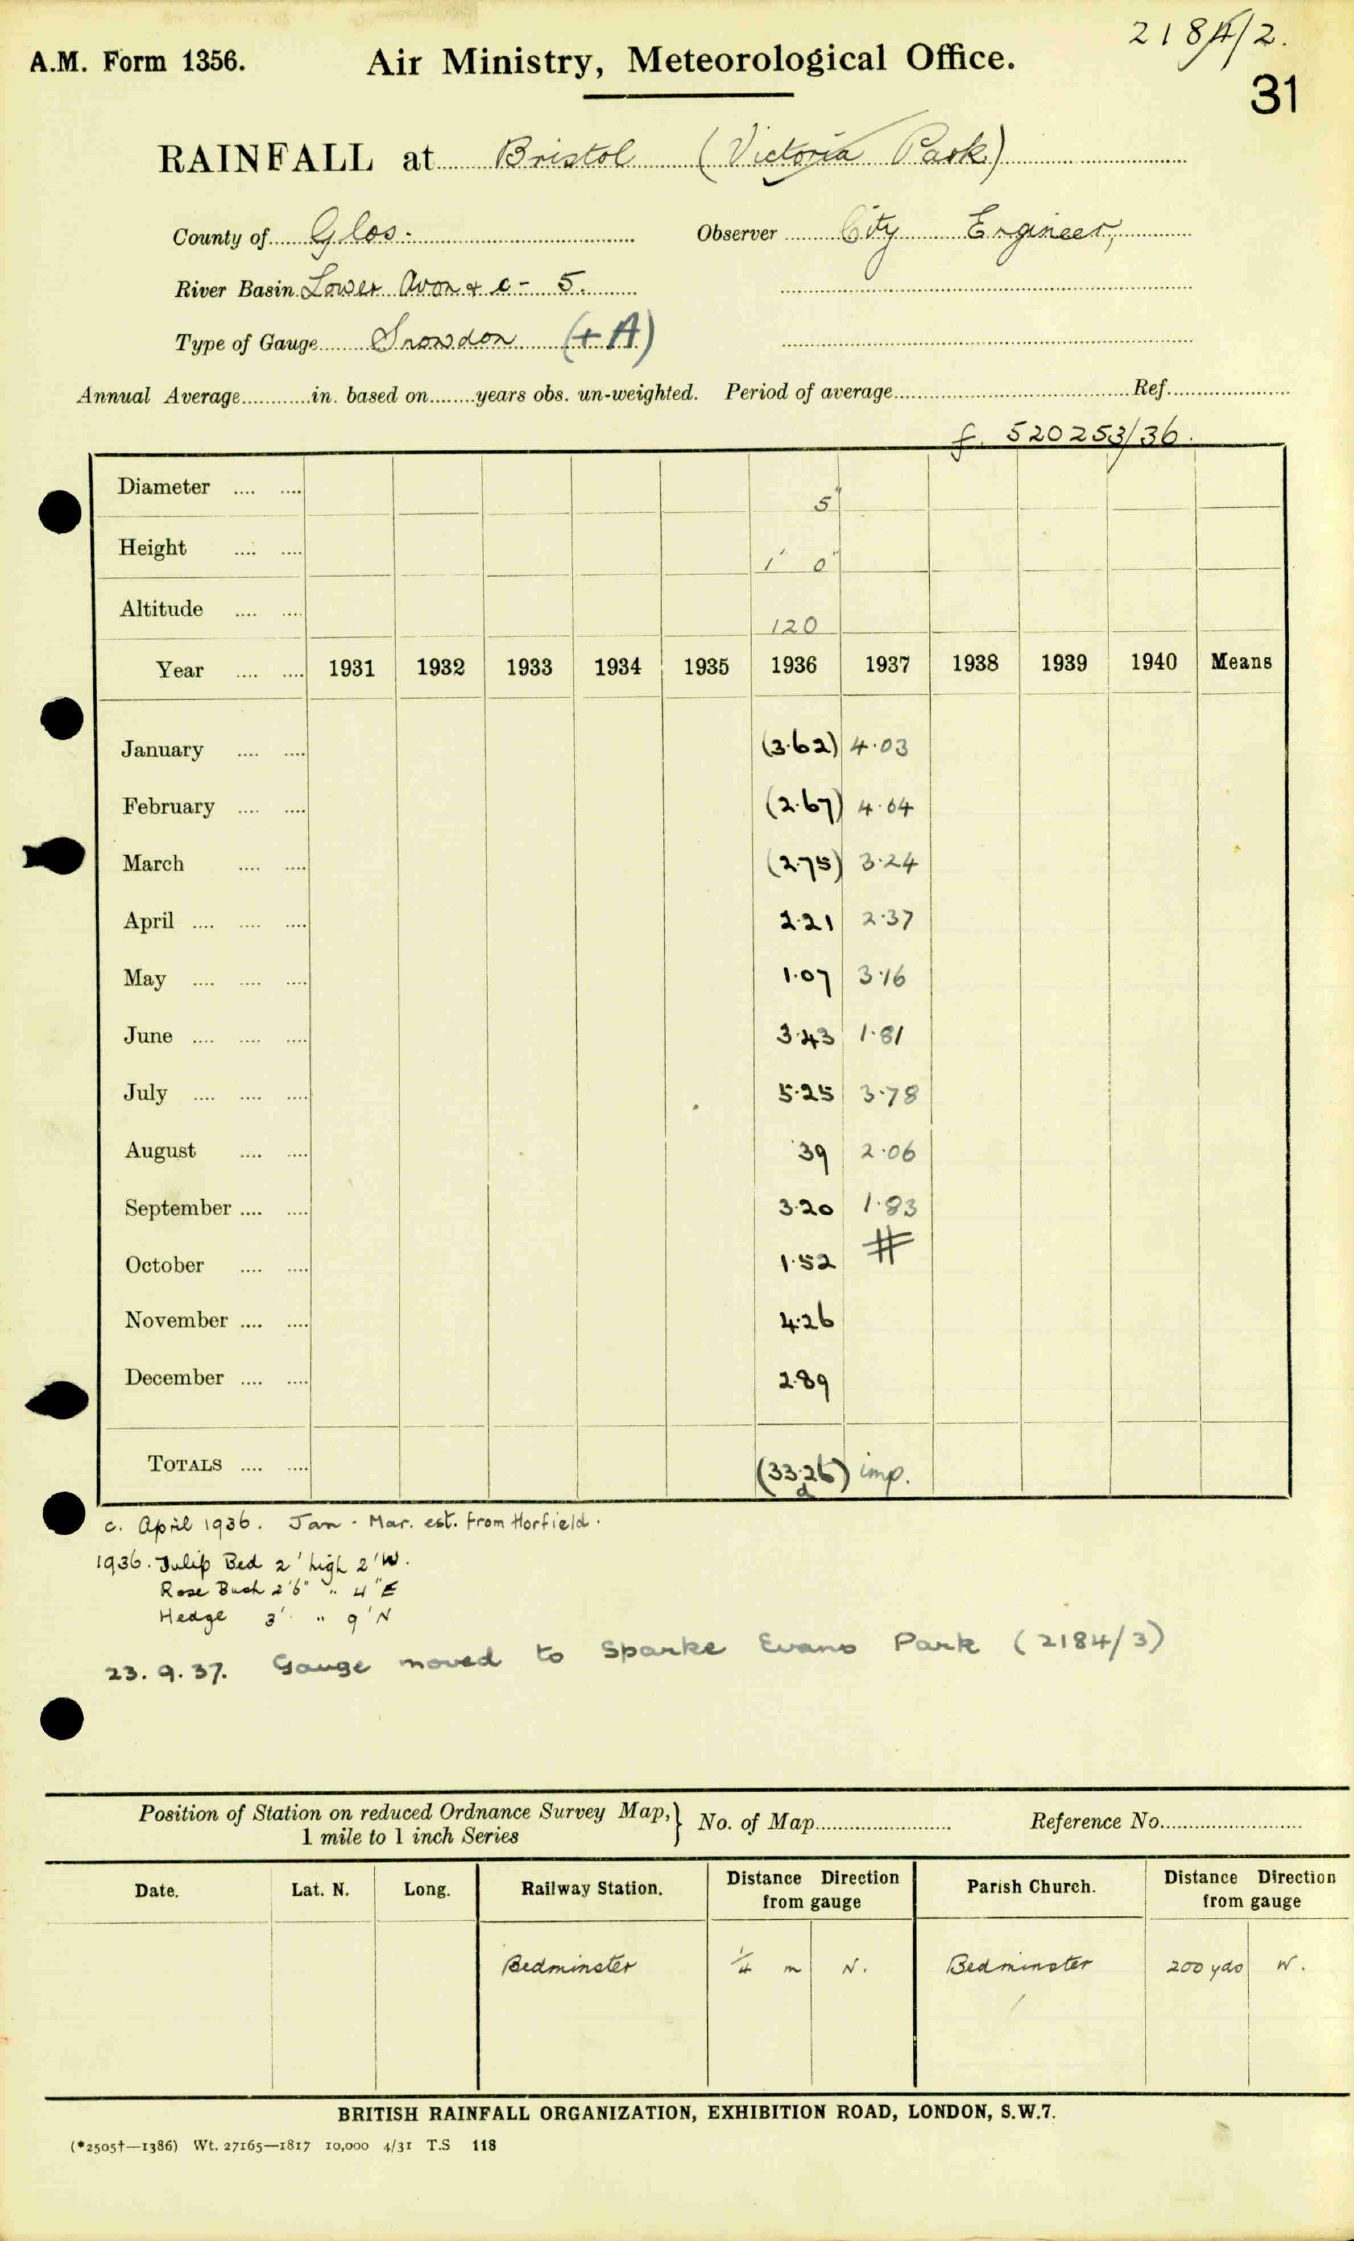 2184/2.
A.M. Form 1356. Air Ministry, Meteorological Office.
31
RAINFALL at Bristol (Victoria Park)
County of Glos. Observer City Engineer,
River Basin Lower Avon & c - 5.
Type of Gauge Snowdon (+A)
Annual Average............in. based on........years obs. un-weighted. Period of average........................................Ref.....................
f. 520253/36.
Diameter .... .... 5"
Height .... .... 1' 0"
Altitude .... .... 120
Year .... .... 1931 1932 1933 1934 1935 1936 1937 1938 1939 1940 Means
January .... .... (3.62) 4.03
February .... .... (2.67) 4.64
March .... .... (2.75) 3.24
April .... .... .... 2.21 2.37
May .... .... .... 1.07 3.16
June .... .... .... 3.43 1.81
July .... .... .... 5.25 3.78
August .... .... .39 2.06
September .... .... 3.20 1.83
October .... .... 1.52 #
November .... .... 4.26
December .... .... 2.89
TOTALS .... .... (33.26) imp.
a
c. April 1936. Jan - Mar. est. from Horfield.
1936. Tulip Bed 2' high 2'W.
Rose Bush 2'6" " 4" E
Hedge 3' " 9' N
23.9.37. Gauge moved to Sparke Evans Park (2184/3)
Position of Station on reduced Ordnance Survey Map,} No. of Map........................ Reference No.........................
1 mile to 1 inch Series
Date. Lat. N. Long. Railway Station. Distance Direction from gauge Parish Church. Distance Direction from gauge
Bedminster 1/4 m N. Bedminster 200 yds W.
BRITISH RAINFALL ORGANIZATION, EXHIBITION ROAD, LONDON, S.W.7.
(*2505†—1386) Wt. 27165—1817 10,000 4/31 T.S 118